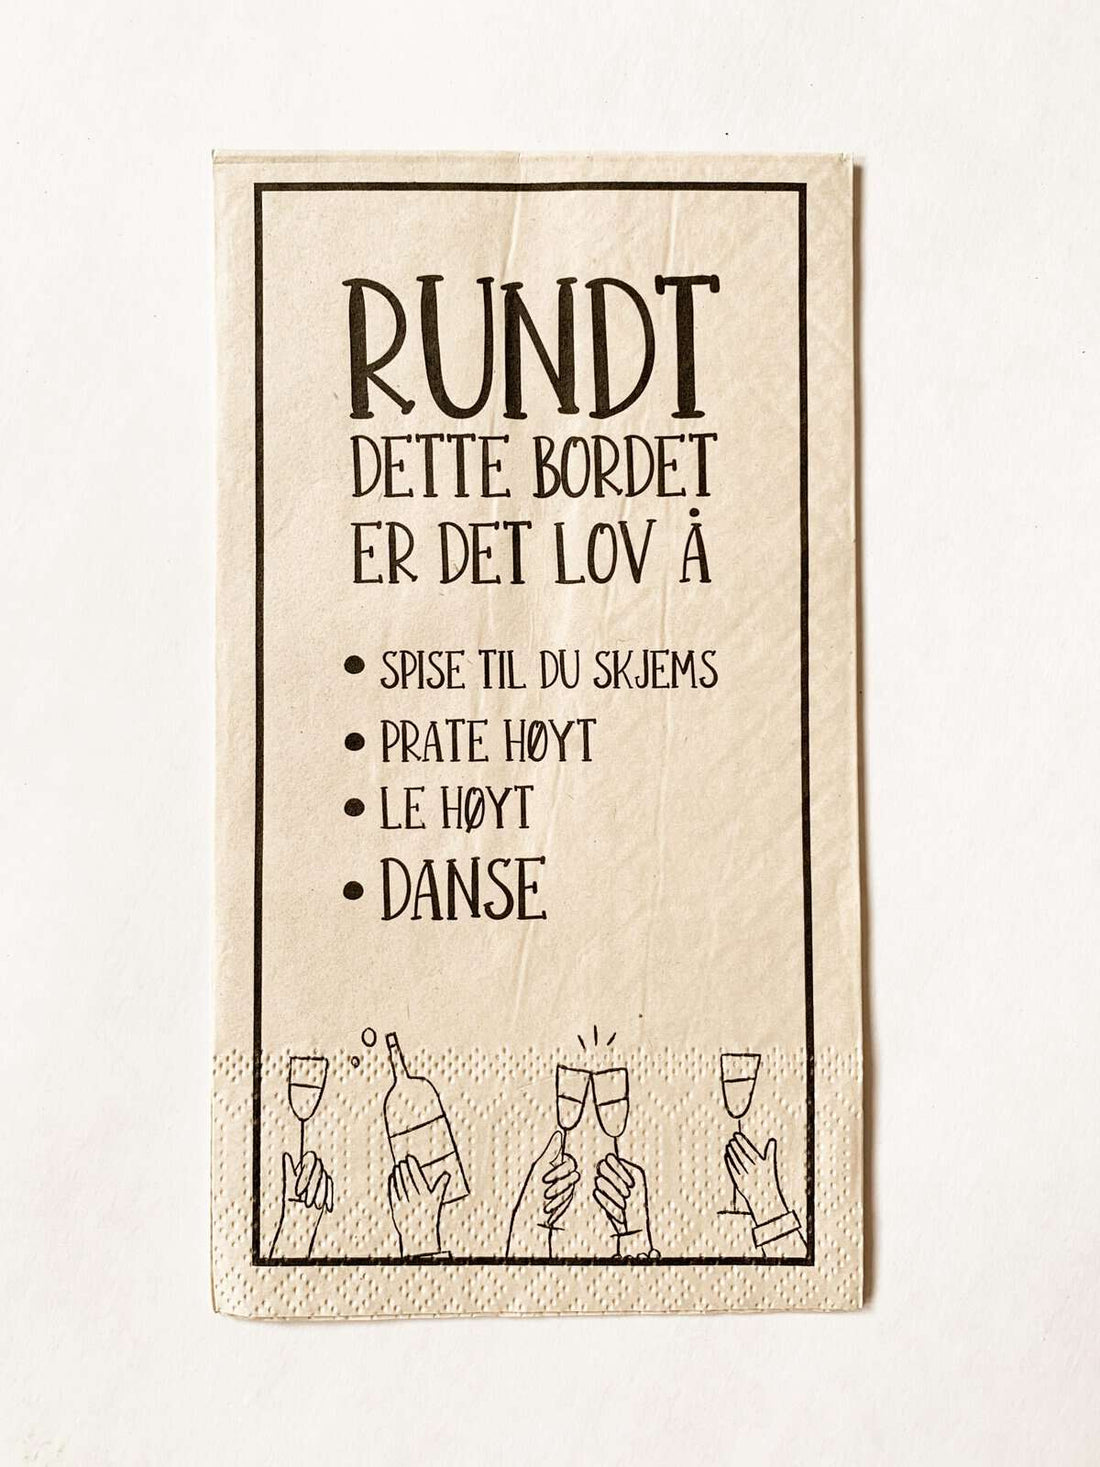 RUNDT
DETTE BORDET
ER DET LOV Å
• SPISE TIL DU SKJEMS
• PRATE HØYT
• LE HØYT
• DANSE